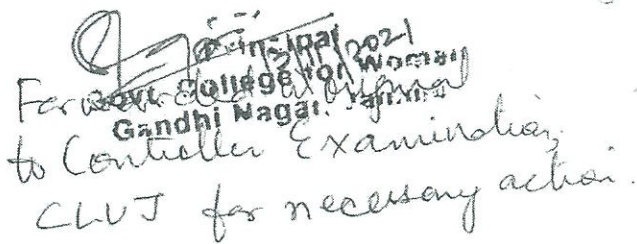 Principal
12/11/2021
Govt. College for Women
Gandhi Nagar, Jammu
Forwarded in original
to Controller Examination,
CLUJ for necessary action.